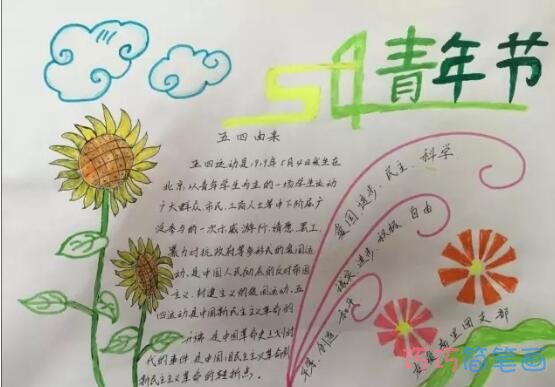 54青年节
五四由来
五四运动是1919年5月4日发生在
北京,以青年学生为主的一场学生运动
广大群众、市民、工商人士等中下阶层广
泛参与的一次示威游行、请愿、罢工、
暴力对抗政府等多形式的爱国运
动,是中国人民彻底的反对帝国
主义、封建主义的爱国运动,五
四运动是中国新民主主义革命的
开端,是中国革命史上划时
代的事件,是中国旧民主主义革命到
新民主主义革命的转折点。
爱国、进步、民主、科学
诚实、进步、积极、自由
创造、和平
南里团支部
巧巧简笔画